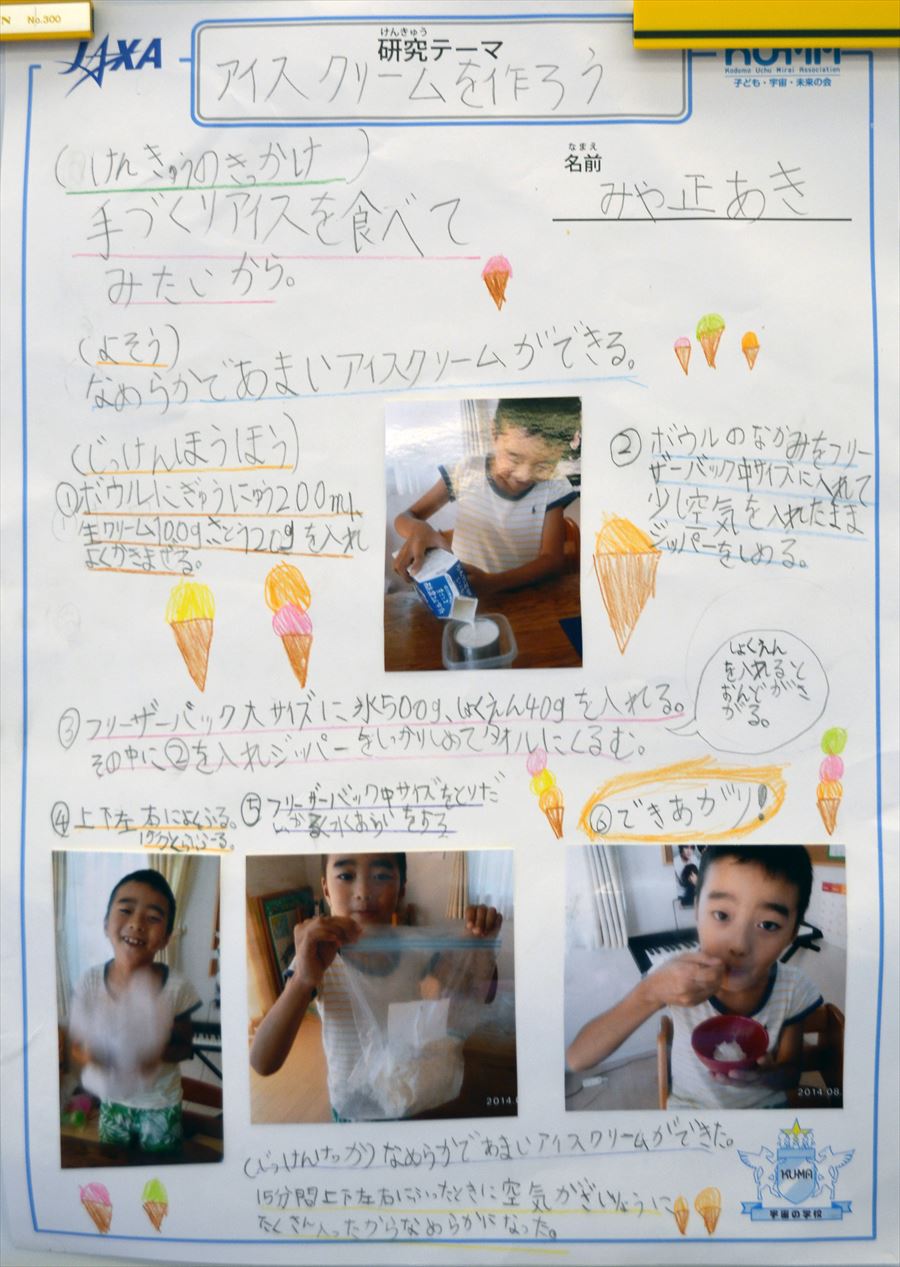 No.300
JAXA
けんきゅう
研究テーマ
アイスクリームを作ろう
Kodomo Uchu Mirai Association
子ども・宇宙・未来の会
(けんきゅうのきっかけ)
手づくりアイスを食べて
みたいから。
なまえ
名前
みや正あき
(よそう)
なめらかであまいアイスクリームができる。
(じっけんほうほう)
①ボウルにぎゅうにゅう200ml
生クリーム100gさとう120gを入れ
よくかきまぜる。
②ボウルのなかみをフリー
ザーバック中サイズに入れて
少し空気を入れたまま
ジッパーをしめる。
③フリーザーバック大サイズに氷500g、しょくえん40gを入れる。
その中に②を入れジッパーをしっかりしめてタオルにくるむ。
しょくえん
を入れると
おんどがさ
がる。
④上下左右によくふる。
⑤フリーザーバック中サイズをとりだ
水あらいをする
⑥できあがり!
2014.0
2014.08
(じっけんけっか)なめらかであまいアイスクリームができた。
15分間上下左右にふったときに空気がざいりょうに
たくさん入ったからなめらかになった。
KUMA
宇宙の学校